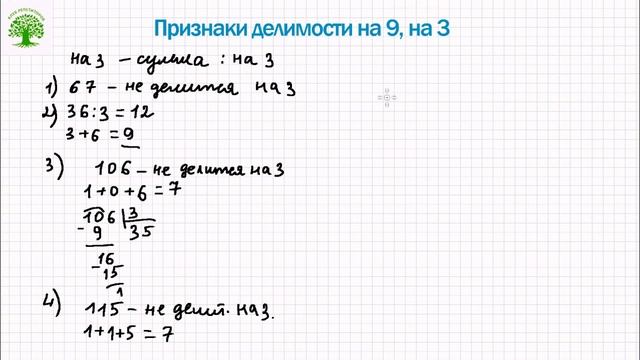 КЛУБ РЕПЕТИТОРОВ
Признаки делимости на 9, на 3
на 3 – сумма : на 3
1) 67 – не делится на 3
2) 36:3=12
3+6=9
3) 106 – не делится на 3
1+0+6=7
106 3
- 9 35
16
- 15
1
4) 115 – не делит. на 3.
1+1+5=7